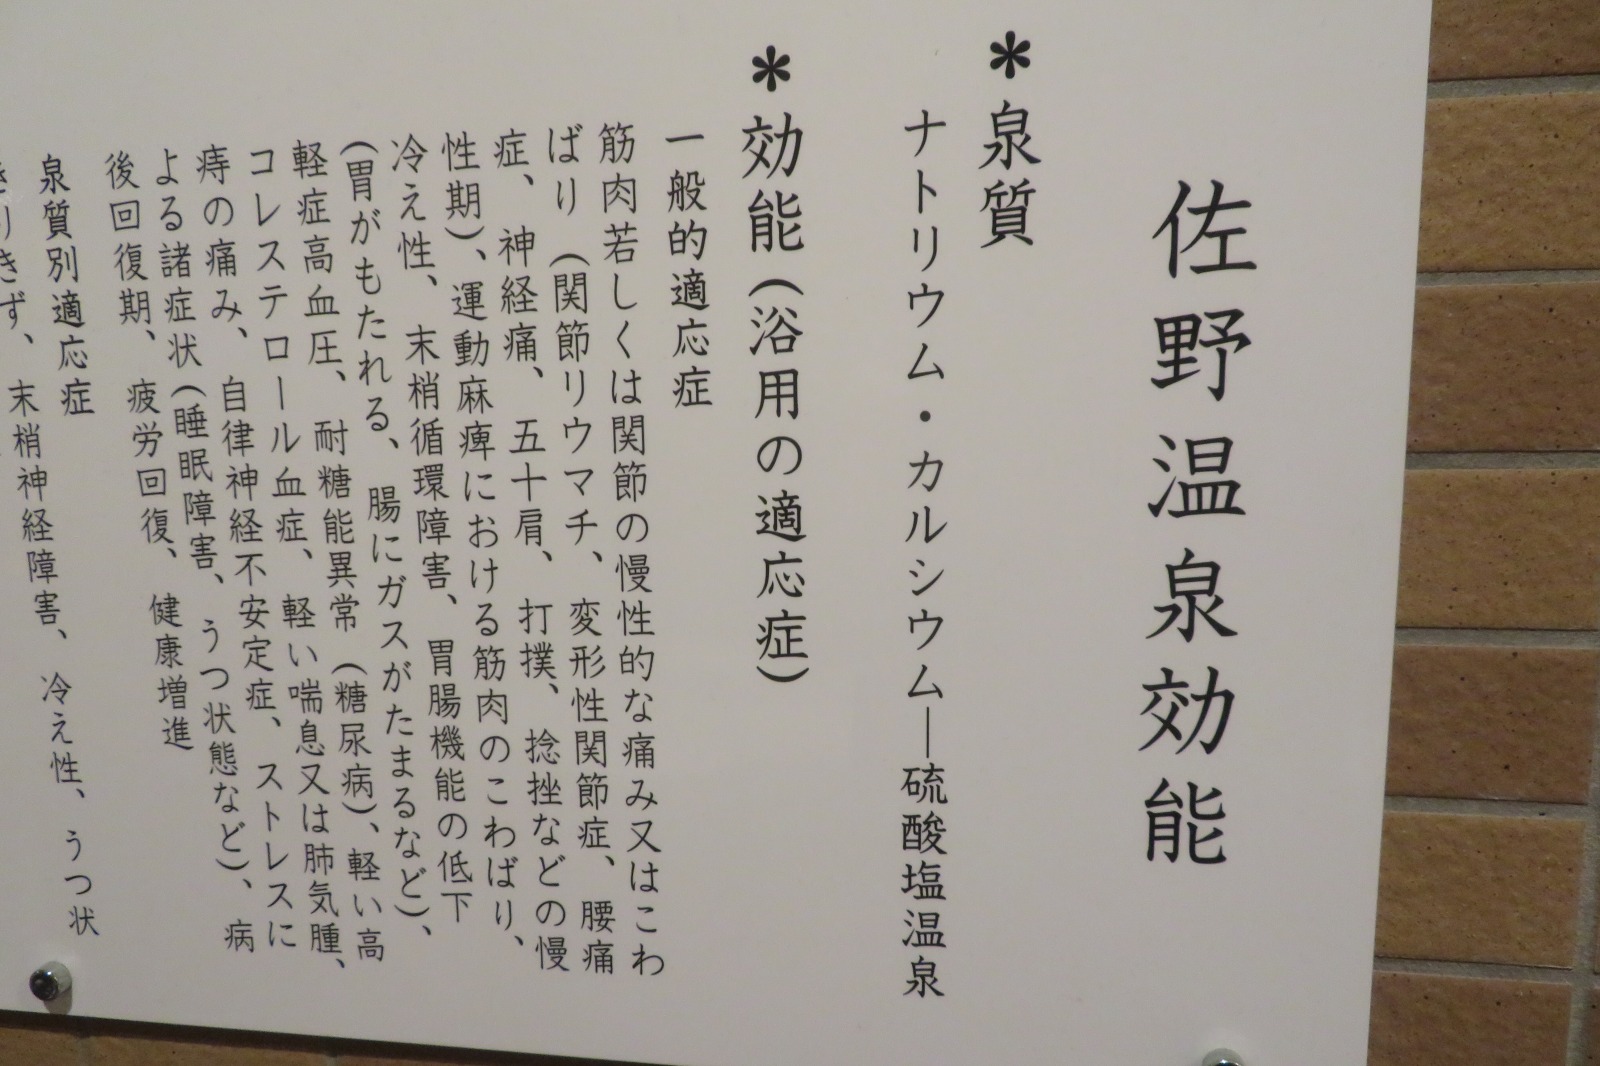 佐野温泉効能
＊泉質
ナトリウム・カルシウム―硫酸塩温泉
＊効能(浴用の適応症)
一般的適応症
筋肉若しくは関節の慢性的な痛み又はこわ
ばり(関節リウマチ、変形性関節症、腰痛
症、神経痛、五十肩、打撲、捻挫などの慢
性期)、運動麻痺における筋肉のこわばり、
冷え性、末梢循環障害、胃腸機能の低下
(胃がもたれる、腸にガスがたまるなど)、
軽症高血圧、耐糖能異常(糖尿病)、軽い高
コレステロール血症、軽い喘息又は肺気腫、
痔の痛み、自律神経不安定症、ストレスに
よる諸症状(睡眠障害、うつ状態など)、病
後回復期、疲労回復、健康増進
泉質別適応症
きりきず、末梢神経障害、冷え性、うつ状